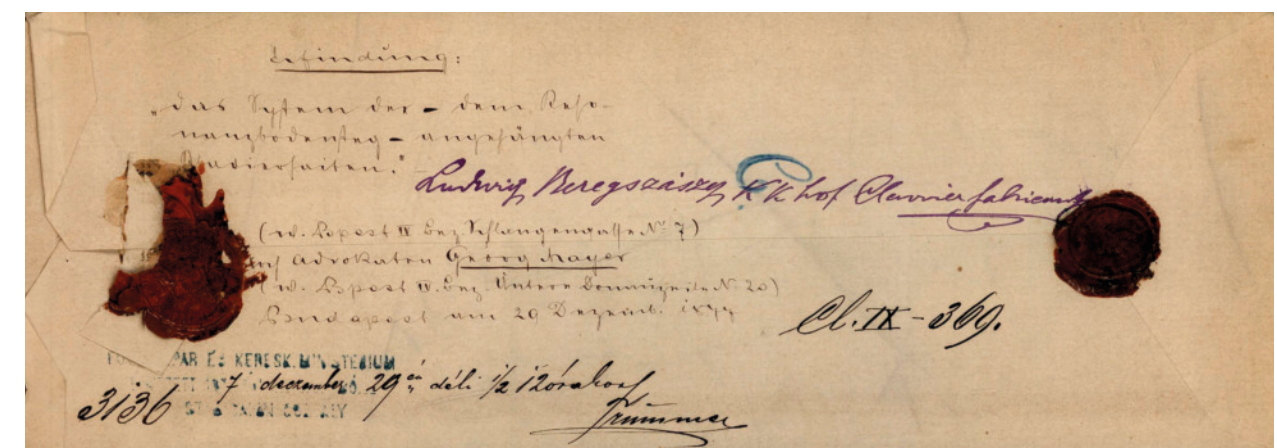 Erfindung:
„das System der - dem Reso-
nanzbodensteg - angehängten
Klaviersaiten."
Ludwig Beregszászy K K hof Clavierfabricant
(w. Bpest IV Bez. Schlangengasse No 7)
Advokaten Georg Mayer
(w. Bpest IV. Bez. Untere Donauzeile No 20)
Budapest am 29 Dezemb. 1877
Cl. IX - 369.
IPAR ÉS KERESK. MINISTERIUM
7 deczember 29 én déli 1/2 12 órakor
3136